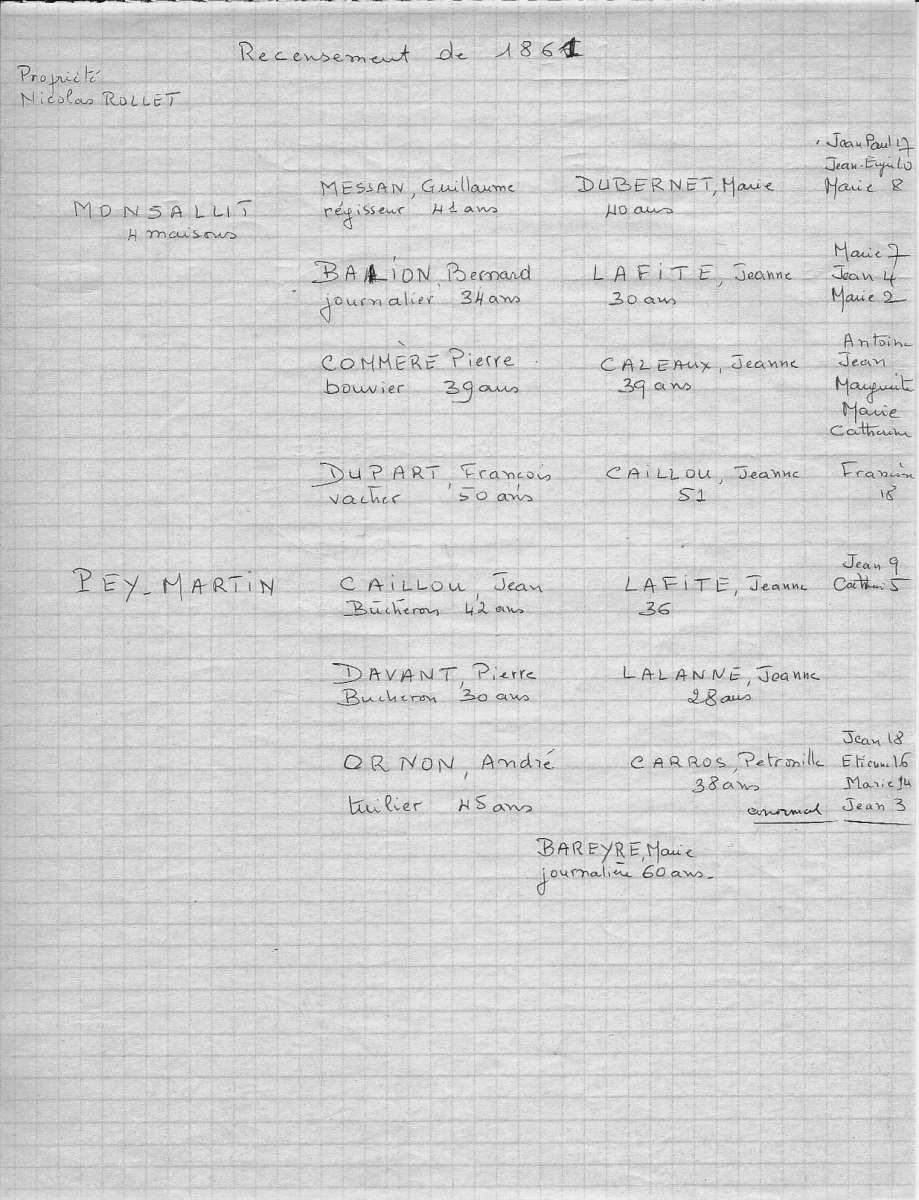 Recensement de 1861
Propriété
Nicolas ROLLET
Jean Paul 17
Jean-Eugè 10
MESSAN, Guillaume DUBERNET, Marie Marie 8
MONSALLIT régisseur 41 ans 40 ans
4 maisons
Marie 7
BALION, Bernard LAFITE, Jeanne Jean 4
journalier 34 ans 30 ans Marie 2
Antoine
COMMÈRE Pierre CAZEAUX, Jeanne Jean
bouvier 39 ans 39 ans Marguerite
Marie
Catherine
DUPART, François CAILLOU, Jeanne
vacher 50 ans 51 18
Jean 9
PEY-MARTIN CAILLOU, Jean LAFITE, Jeanne 5
Bûcheron 42 ans 36
DAVANT, Pierre LALANNE, Jeanne
Bucheron 30 ans 28 ans
Jean 18
ORNON, André CARROS, Petronille Etienne 16
38 ans Marie 14
tuilier 45 ans anormal Jean 3
BAREYRE, Marie
journalière 60 ans-